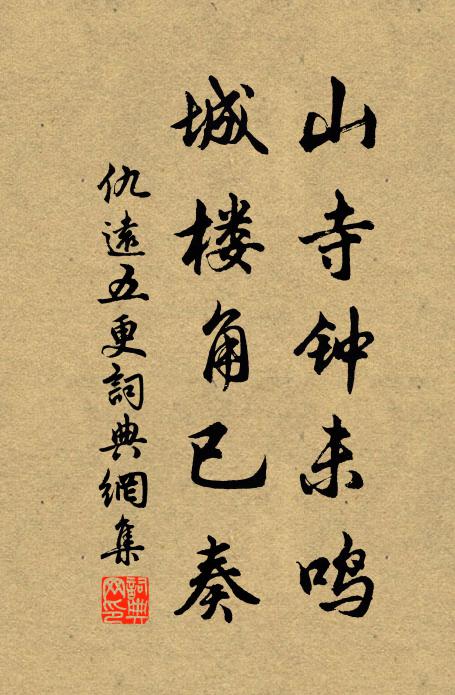 山寺钟未鸣
城楼角已奏
仇遠五更詞典網集
詞典網印